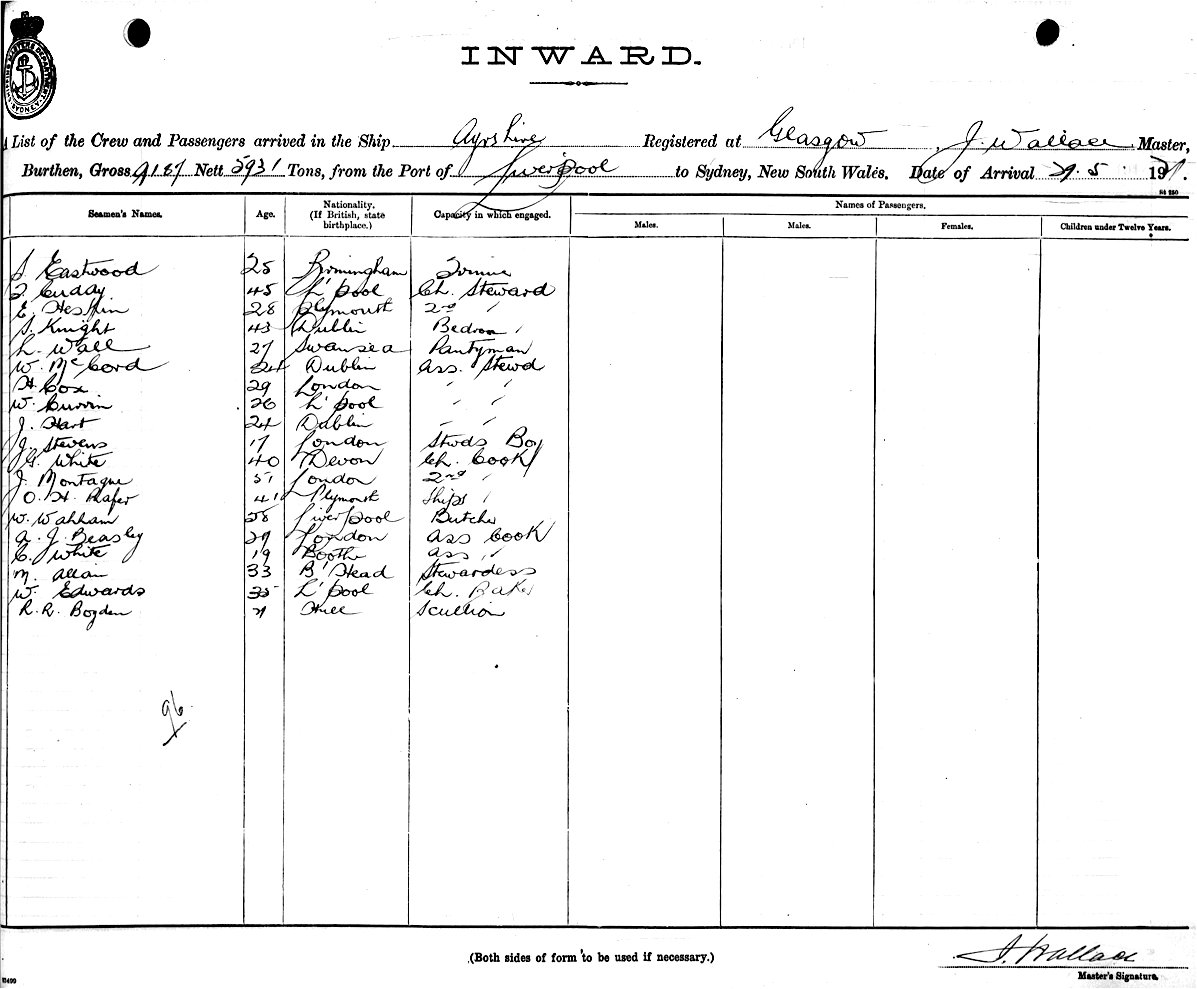 SHIPPING MASTERS DEPARTMENT SYDNEY
INWARD.
List of the Crew and Passengers arrived in the Ship Ayrshire Registered at Glasgow, J. Wallace Master,
Burthen, Gross 9187 Nett 5931 Tons, from the Port of Liverpool to Sydney, New South Wales. Date of Arrival 29. 5 1921.
Seamen's Names. Age. Nationality. (If British, state birthplace.) Capacity in which engaged. Names of Passengers.
Males. Males. Females. Children under Twelve Years.
S. Eastwood 25 Birmingham
45 L'pool Ch. Steward
E. 28 Plymouth 2nd "
S. Knight 43 Dublin Bedroom "
L. Wall 27 Swansea Pantyman
W. McCord 24 Dublin Ass. Stewd
H. Cox 29 London " "
W. Currin 26 L'pool " "
J. Hart 24 Dublin " "
J. Stevens 17 London Stwds Boy
G. White 40 Devon Ch. Cook
J. Montague 51 London 2nd "
O. H. 41 Plymout Ships "
W. Wahham 28 Liverpool Butcher
A. J. Beasly 29 London Ass Cook
C. White 19 Bootle Ass "
M. Allan 33 B'Head Stewardess
W. Edwards 35 L'pool Ch. Baker
R. R. Bogden 21 Hull Scullion
96
(Both sides of form to be used if necessary.)
J. Wallace
Master's Signature.